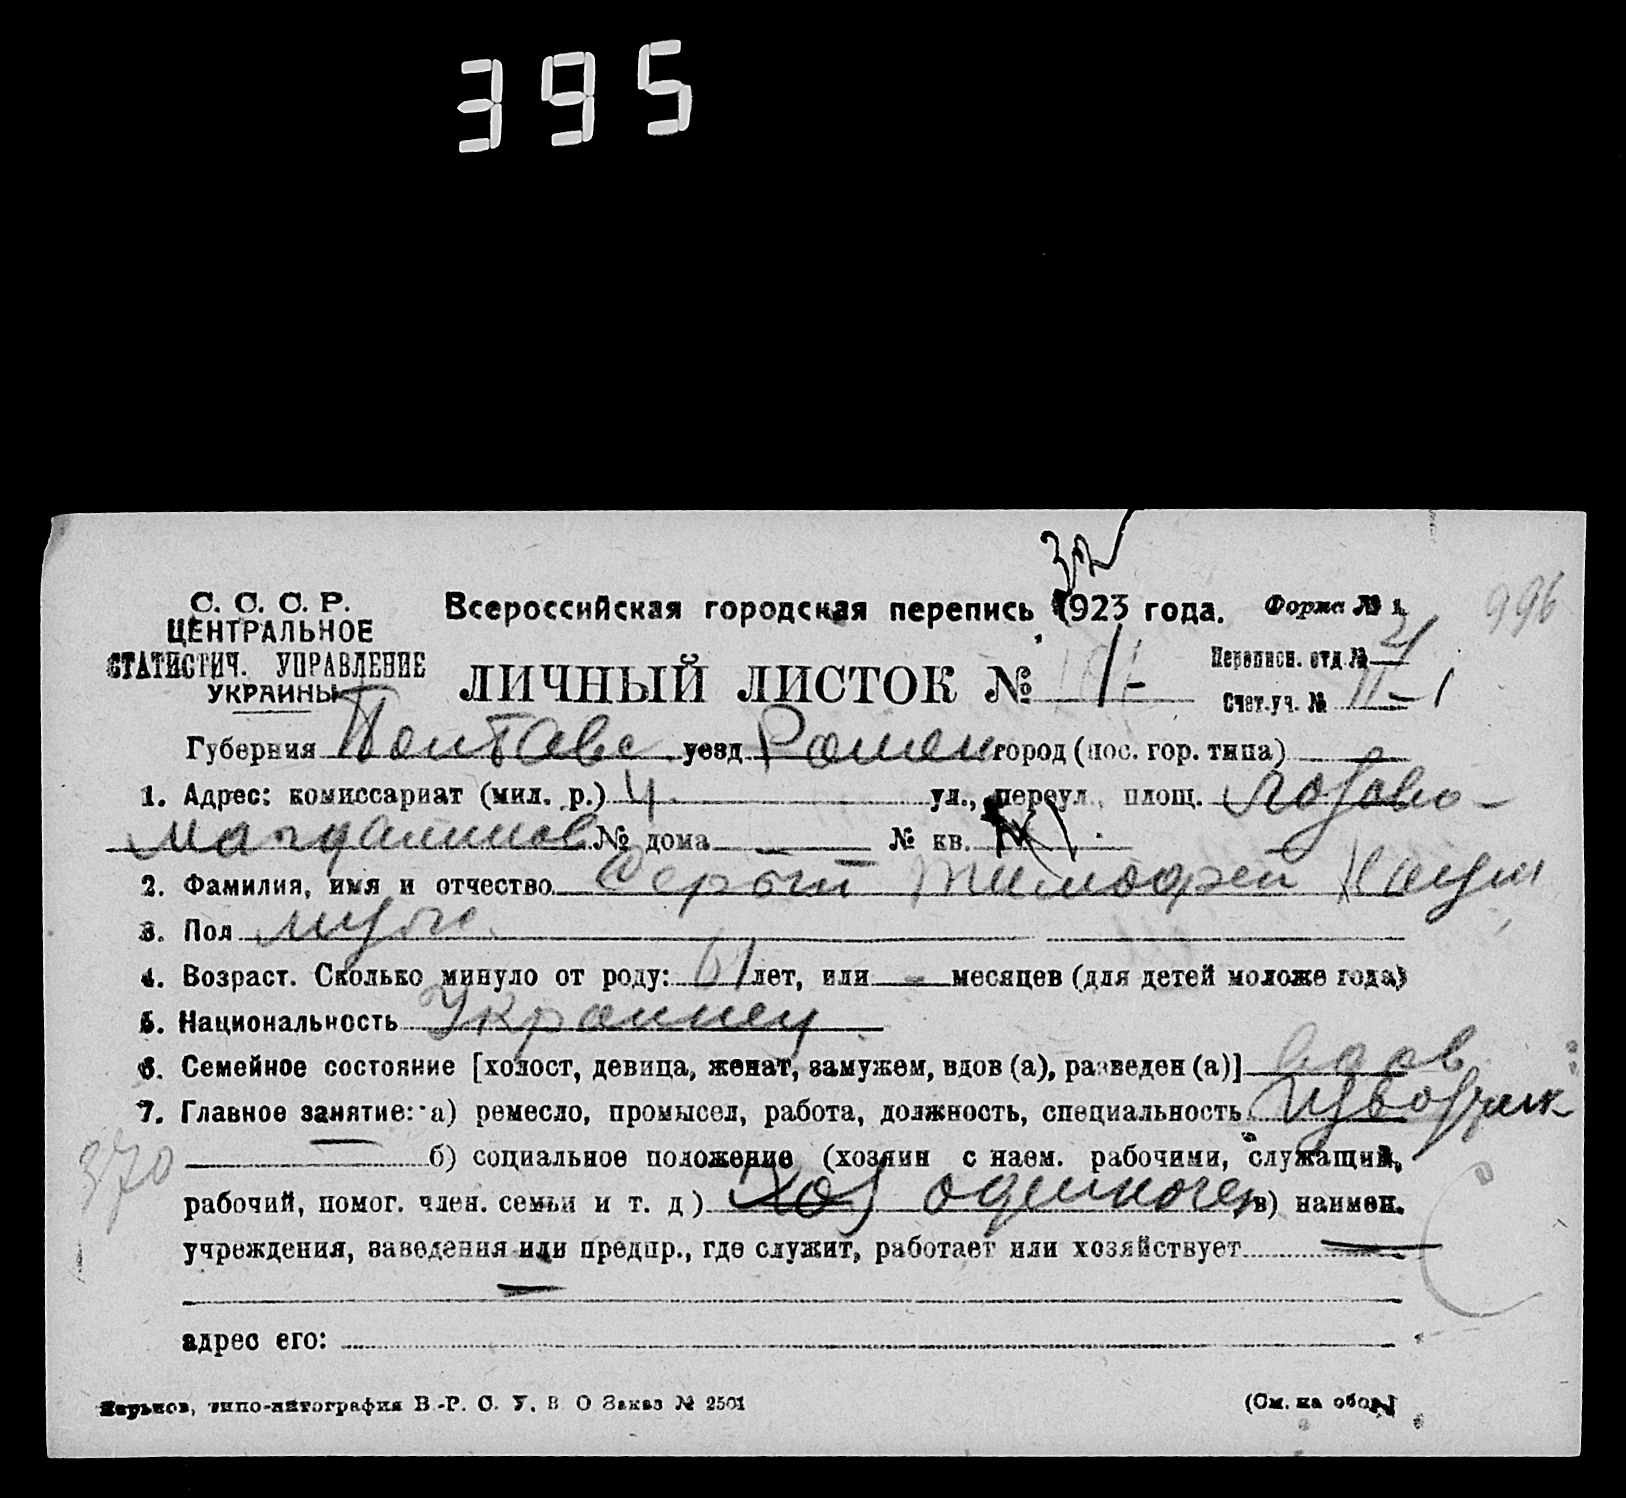 395
С. С. С. Р.
ЦЕНТРАЛЬНОЕ
СТАТИСТИЧ. УПРАВЛЕНИЕ
УКРАИНЫ
Всероссийская городская перепись 1923 года.
Форма № 1
996
ЛИЧНЫЙ ЛИСТОК № 1-
Переписн. отд. №
Счет.уч. № II-1
Губерния Полтавс уезд Ромен город (пос. гор. типа)
1. Адрес: комиссариат (мил. р.) 4 ул., переул., площ. Лозово-
№ дома — № кв.
2. Фамилия, имя и отчество Серый Тимофей
3. Пол мужс
4. Возраст. Сколько минуло от роду: 61 лет, или - месяцев (для детей моложе года)
5. Национальность Украинец
6. Семейное состояние [холост, девица, женат, замужем, вдов (а), разведен (а)] вдов
7. Главное занятие: а) ремесло, промысел, работа, должность, специальность Извозчик
370 — б) социальное положение (хозяин с наем. рабочими, служащий,
рабочий, помог. член. семьи и т. д) Хоз одиночка в) наимен.
учреждения, заведения или предпр., где служит, работает или хозяйствует —
—
адрес его:
Харьков, типо-литография В.-Р. С. У. В О Заказ № 2501
(См. на обор.)